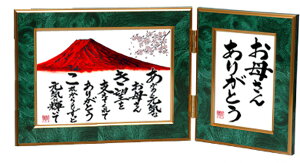 あかるく元気な
お母さん
き望を
支えてくれて
ありがとう
これからもずっと
元気で輝いて
お母さん
ありがとう